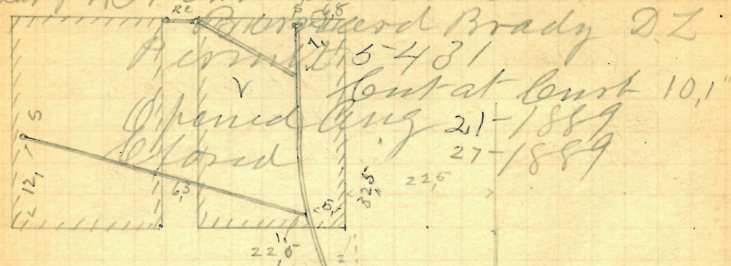 Bernard Brady DL
Permit 5431
Cut at Curb 10,1"
Opened Aug 21-1889
Closed 27-1889
22,5
32,5
12,5
63
22,5